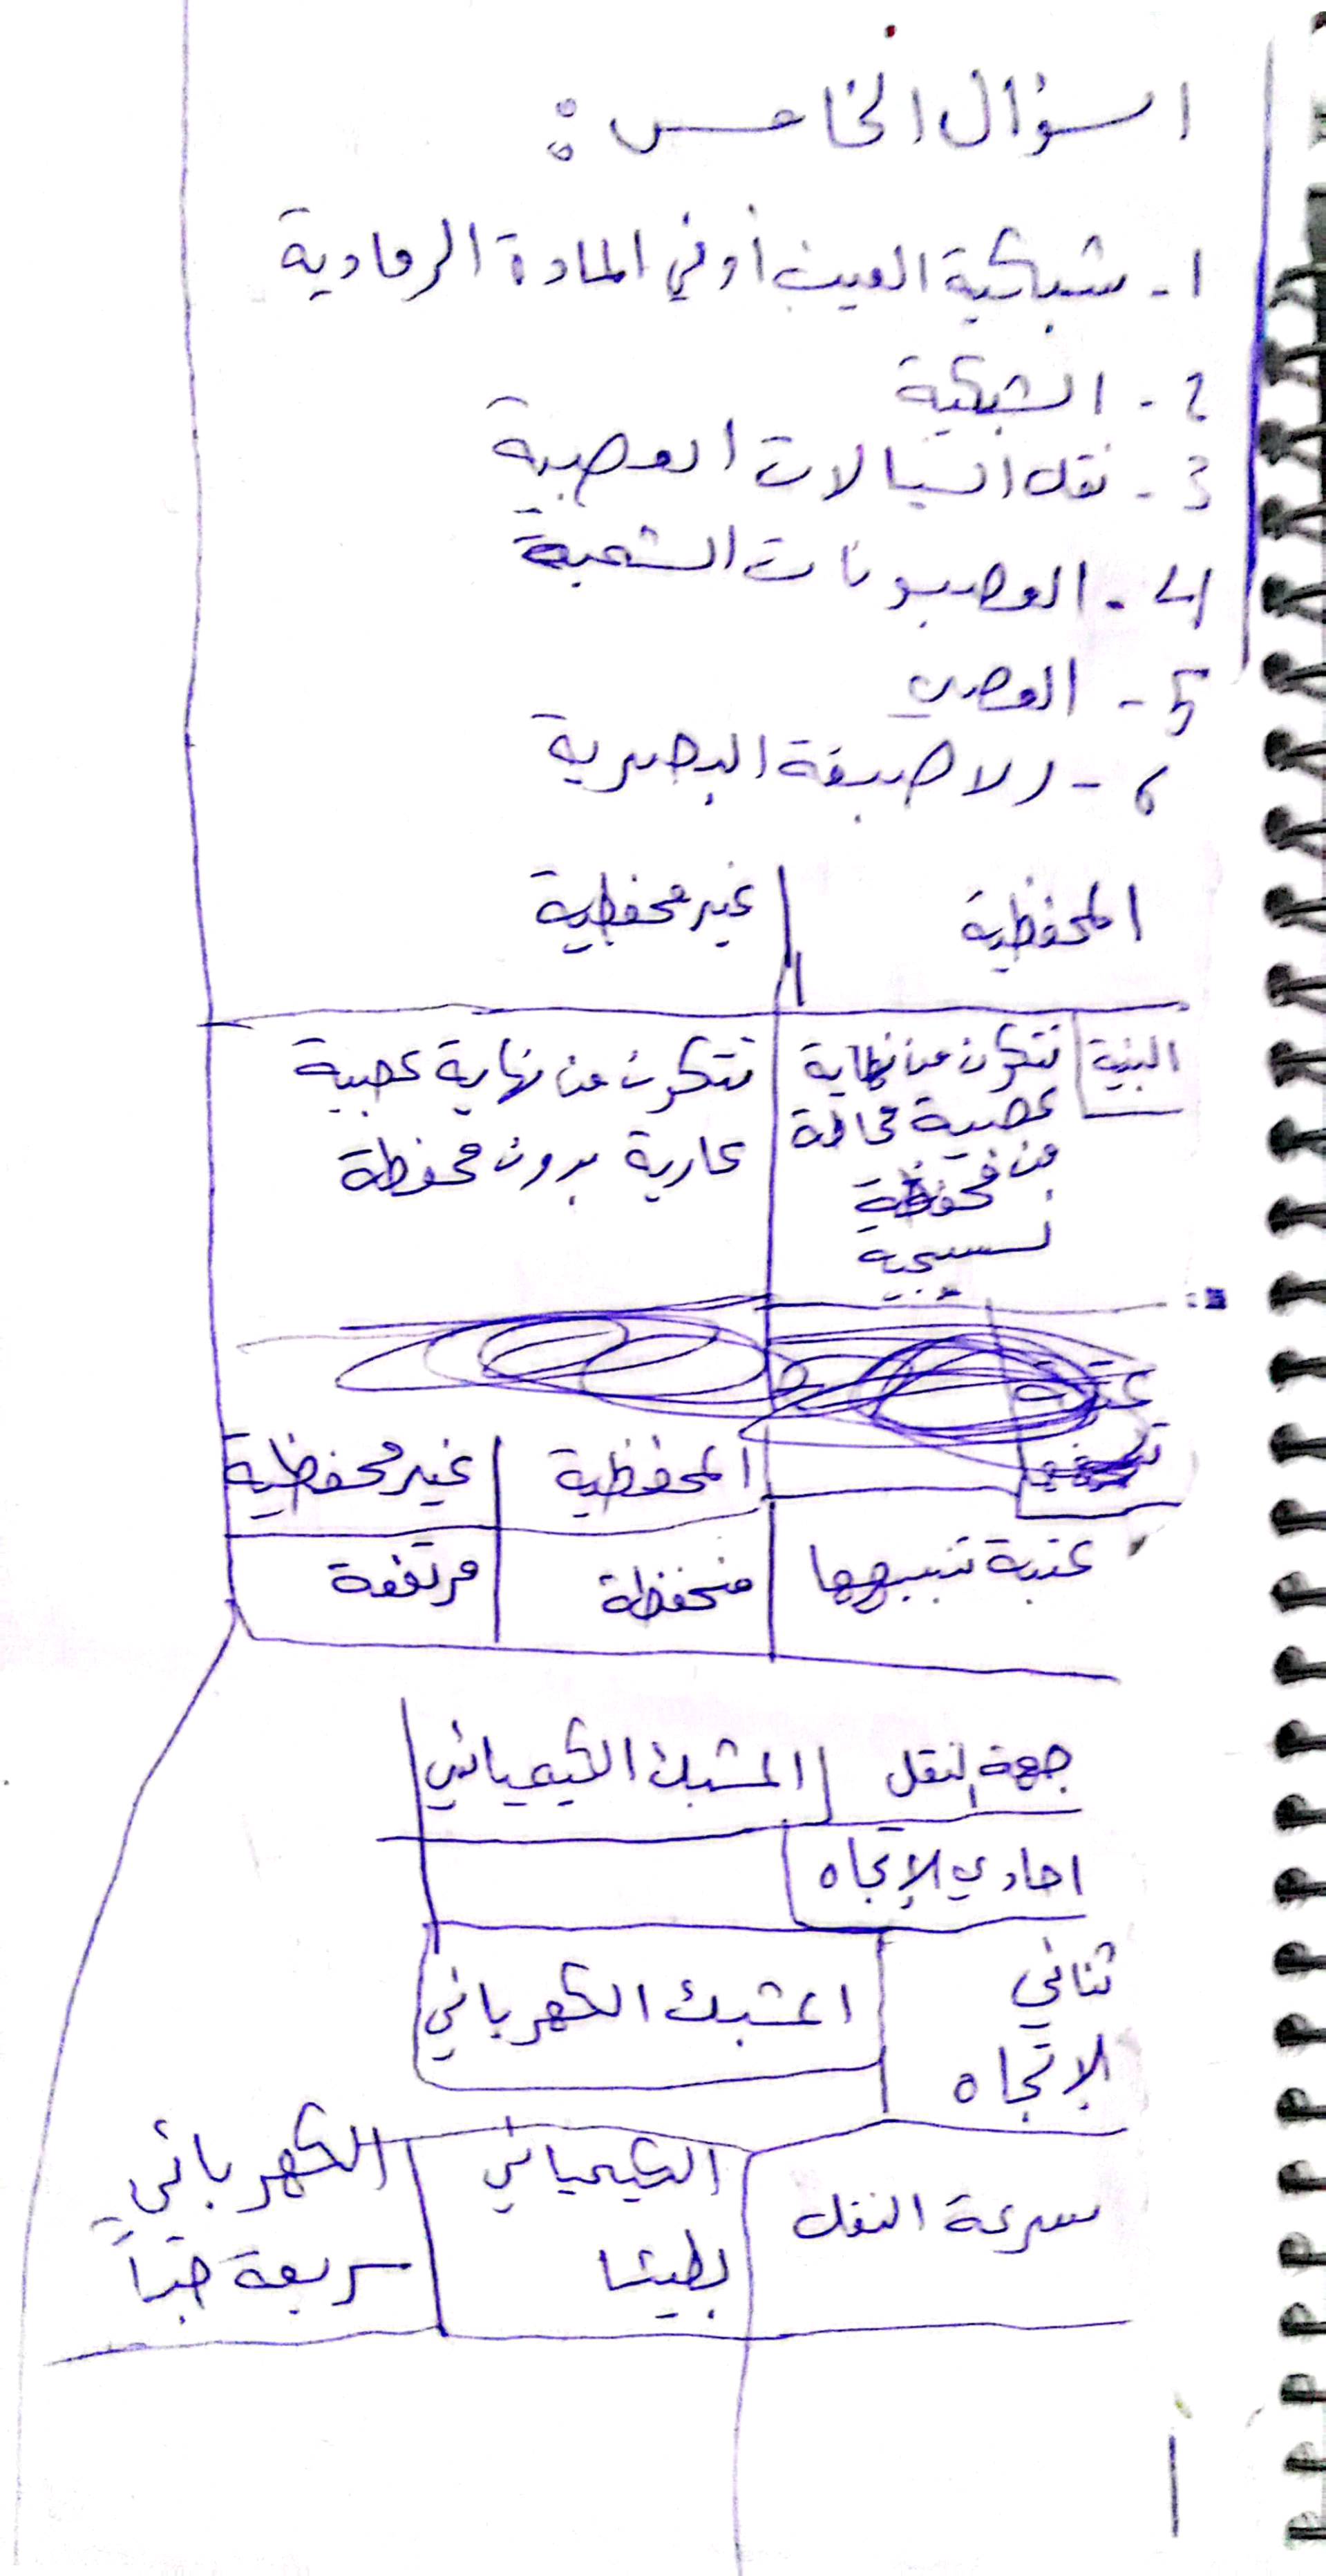 السؤال الخامس:
1- شبكية العين أو في المادة الرمادية
2- الشبكية
3- نقل السيالات العصبية
4- العصبونات الشمية
5- العصي
6- الاصبغة البصرية
المحفظية | غير محفظية
البنية | تتكون من نهاية عصبية محاطة من محفظة نسيجية | تتكون من نهاية عصبية عارية بدون محفظة
المحفظية | غير محفظية
عتبة تنبيهها | منخفظة | مرتفعة
جهة النقل | المشبك الكيميائي
احادي الإتجاه
ثنائي الإتجاه | المشبك الكهربائي
سرعة النقل | الكيميائي بطيئا | الكهربائي سريعة جداً